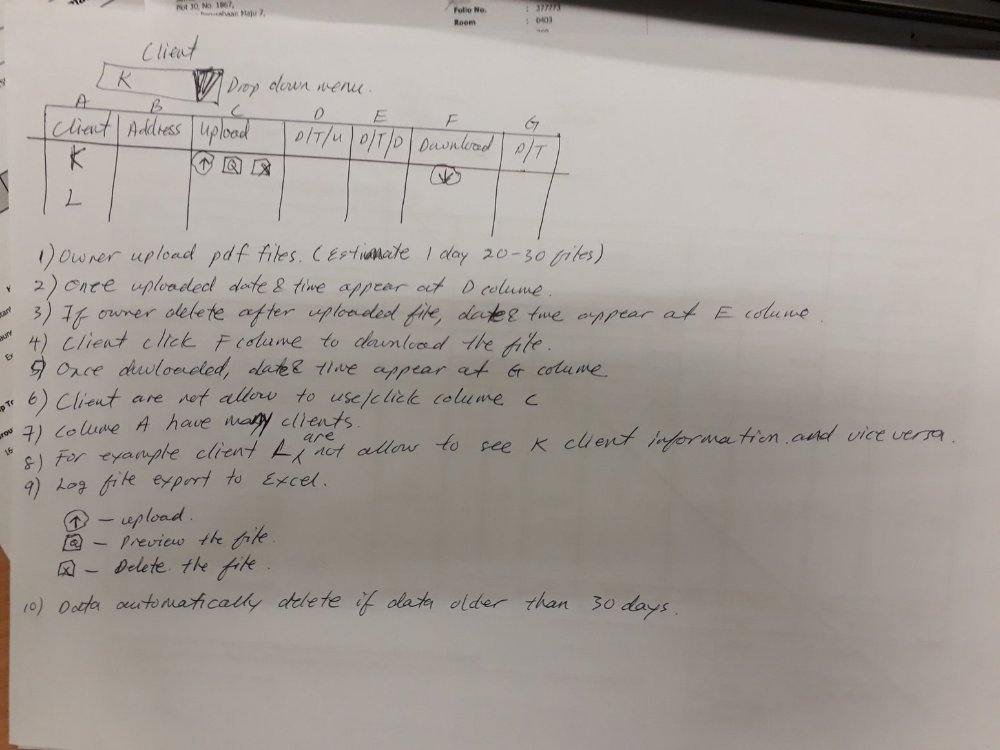 Plot 30, No. 1867,
Perusahaan Maju 7,
Folio No. : 377773
Room : 0403
Client
K Drop down menu.
A B C D E F G
Client Address Upload D/T/U D/T/D Download D/T
K
L
1) Owner upload pdf files. (Estimate 1 day 20-30 files)
2) Once uploaded date & time appear at D colume.
3) If owner delete after uploaded file, date & time appear at E colume.
4) Client click F colume to download the file.
5) Once dowloaded, date & time appear at G colume
6) Client are not allow to use/click column C
7) Colume A have many clients.
8) For example client L are not allow to see K client information and vice versa.
9) Log file export to Excel.
↑ - upload.
Q - Preview the file.
X - Delete the file.
10) Data automatically delete if data older than 30 days.